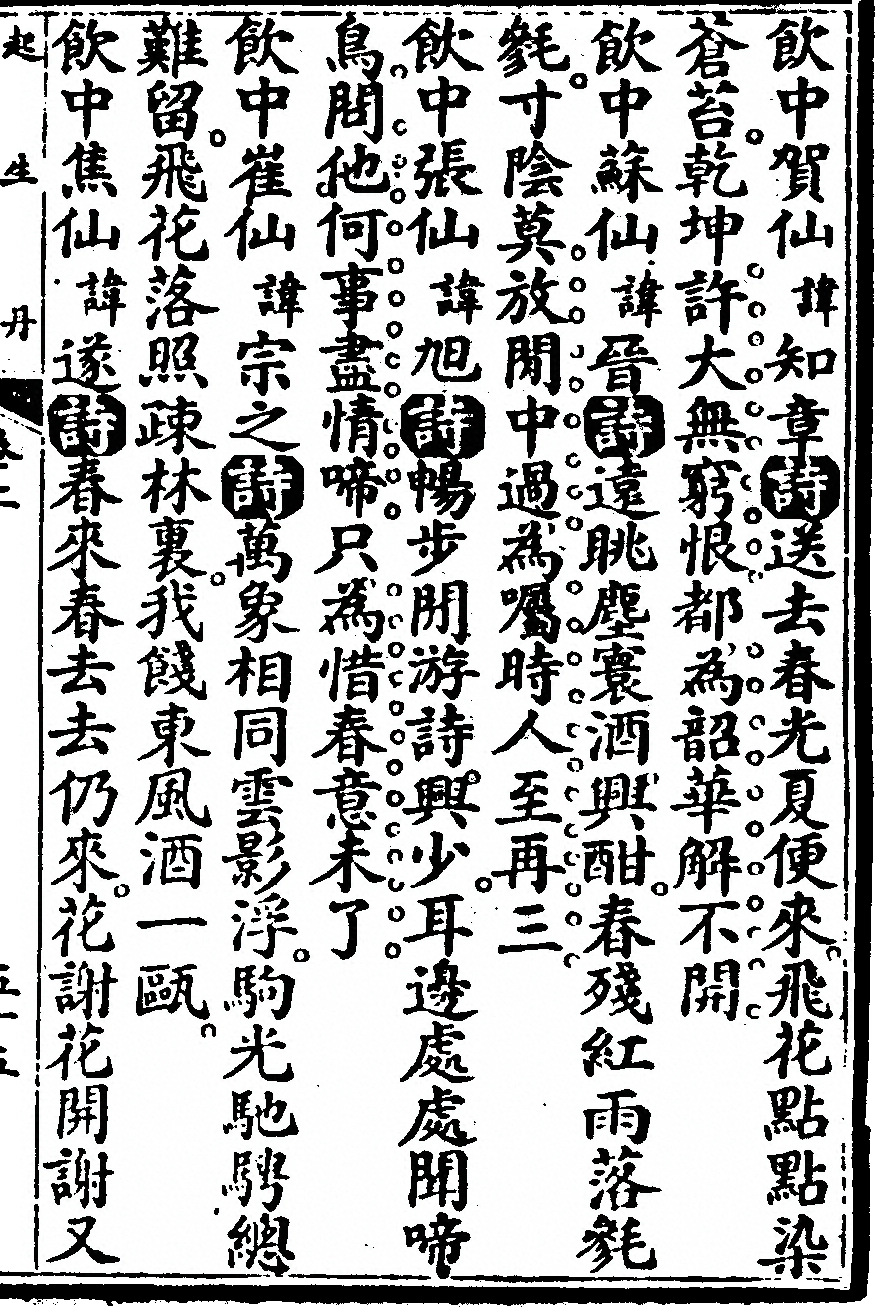 飲中賀仙諱知章詩送去春光夏便來飛花點點染
蒼苔乾坤許大無窮恨都為韶華解不開
飲中蘇仙諱晉詩遠眺塵寰酒興酣春殘紅雨落毿
毿寸陰莫放閒中過為囑時人至再三
飲中張仙諱旭詩暢步閒游詩興少耳邊處處聞啼
鳥問他何事盡情啼只為惜春意未了
飲中崔仙諱宗之詩萬象相同雲影浮駒光馳騁總
難留飛花落照疎林裏我餞東風酒一甌
飲中焦仙諱遂詩春來春去去仍來花謝花開謝又
起生丹